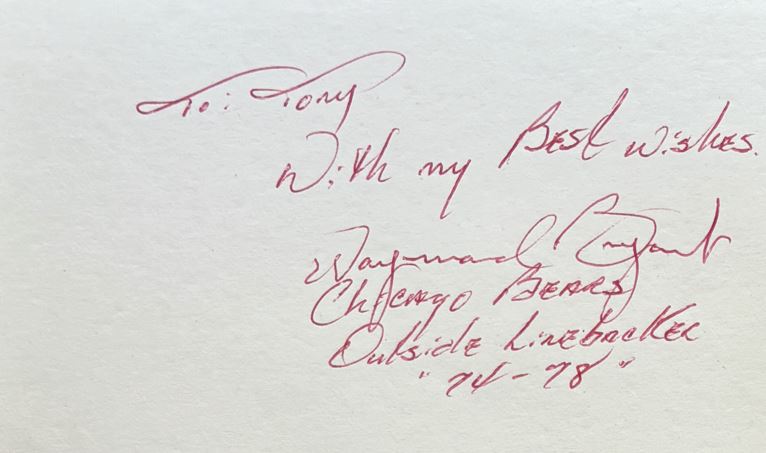 To: Tony
With my Best wishes.
Waymond Bryant
Chicago Bears
Outside Linebacker
"74-78"